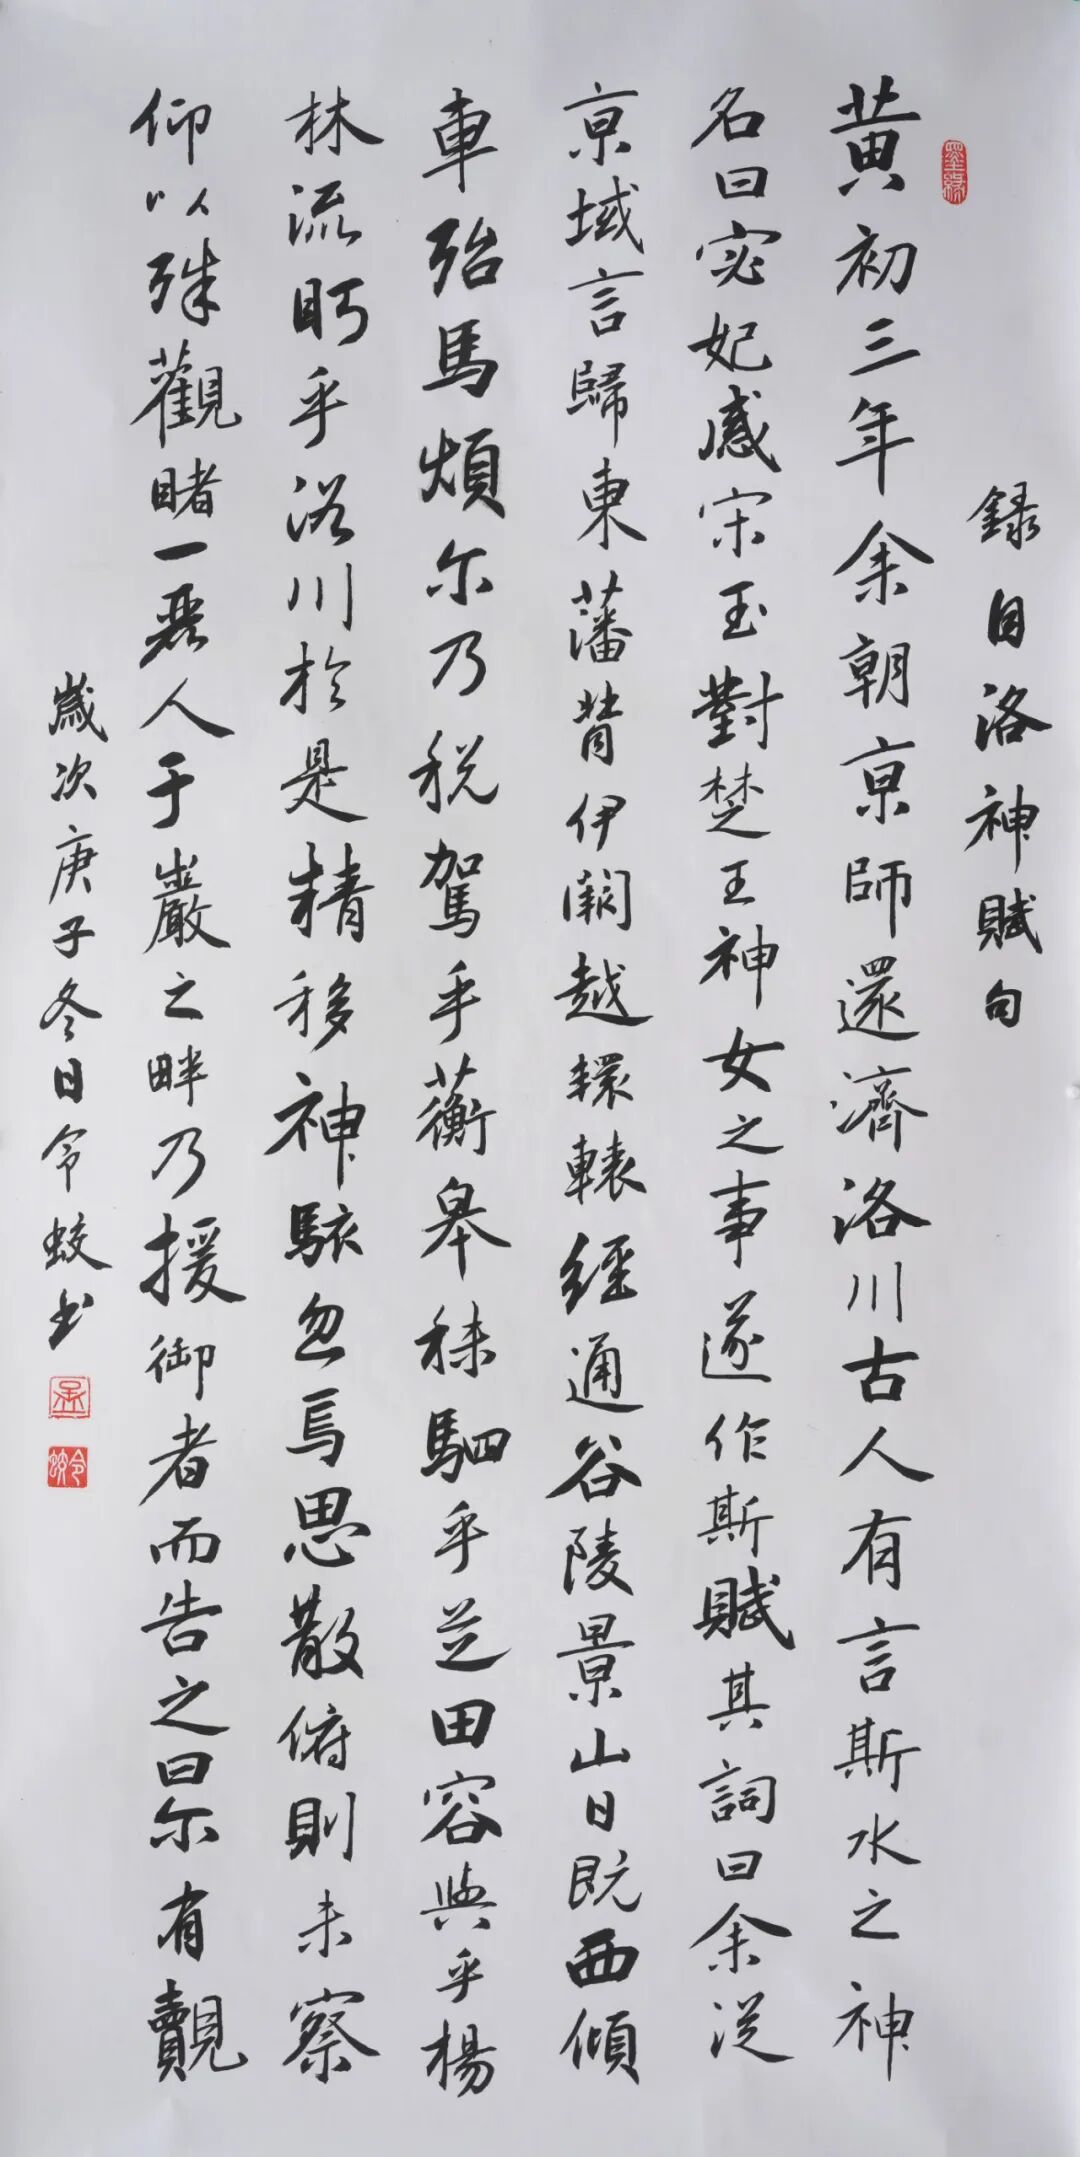 錄自洛神賦句
黃初三年余朝京師還濟洛川古人有言斯水之神
名曰宓妃感宋玉對楚王神女之事遂作斯賦其詞曰余從
京域言歸東藩背伊闕越轘轅經通谷陵景山日既西傾
車殆馬煩尔乃税駕乎蘅皋秣駟乎芝田容與乎楊
林流眄乎洛川於是精移神駭忽焉思散俯則未察
仰以殊觀睹一麗人于巖之畔乃援御者而告之曰尔有覿
歲次庚子冬日令蛟书
墨緣
吴
令蛟